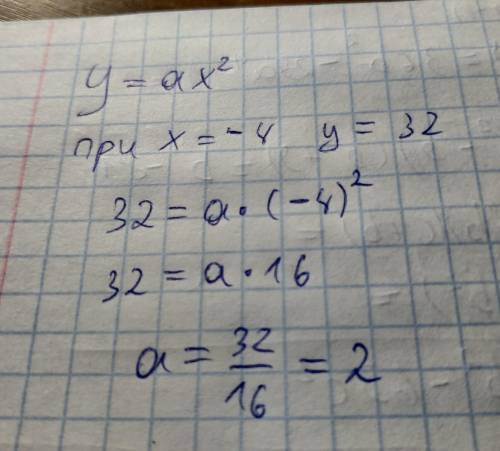 y = ax²
при x = -4 y = 32
32 = a · (-4)²
32 = a · 16
a = 32/16 = 2